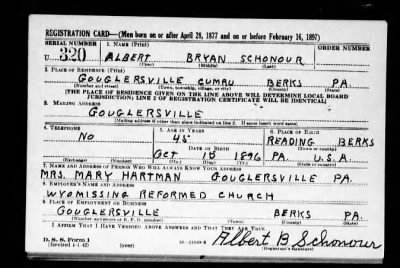 REGISTRATION CARD—(Men born on or after April 28, 1877 and on or before February 16, 1897)
SERIAL NUMBER 1. NAME (Print) ORDER NUMBER
U 320 ALBERT BRYAN SCHONOUR
(First) (Middle) (Last)
2. PLACE OF RESIDENCE (Print)
GOUGLERSVILLE CUMRU BERKS PA.
(Number and street) (Town, township, village, or city) (County) (State)
[THE PLACE OF RESIDENCE GIVEN ON THE LINE ABOVE WILL DETERMINE LOCAL BOARD
JURISDICTION; LINE 2 OF REGISTRATION CERTIFICATE WILL BE IDENTICAL]
3. MAILING ADDRESS
GOUGLERSVILLE
[Mailing address if other than place indicated on line 2. If same insert word same]
4. TELEPHONE 5. AGE IN YEARS 6. PLACE OF BIRTH
NO 45 READING BERKS
DATE OF BIRTH (Town or county)
OCT 15 1896 PA. U.S.A.
(Exchange) (Number) (Mo.) (Day) (Yr.) (State or country)
7. NAME AND ADDRESS OF PERSON WHO WILL ALWAYS KNOW YOUR ADDRESS
MRS. MARY HARTMAN GOUGLERSVILLE PA.
8. EMPLOYER'S NAME AND ADDRESS
WYOMISSING REFORMED CHURCH
9. PLACE OF EMPLOYMENT OR BUSINESS
GOUGLERSVILLE BERKS PA.
(Number and street or R. F. D. number) (Town) (County) (State)
I AFFIRM THAT I HAVE VERIFIED ABOVE ANSWERS AND THAT THEY ARE TRUE.
D. S. S. Form 1 Albert B Schonour
(Revised 4-1-42) (over) (Registrant's signature)